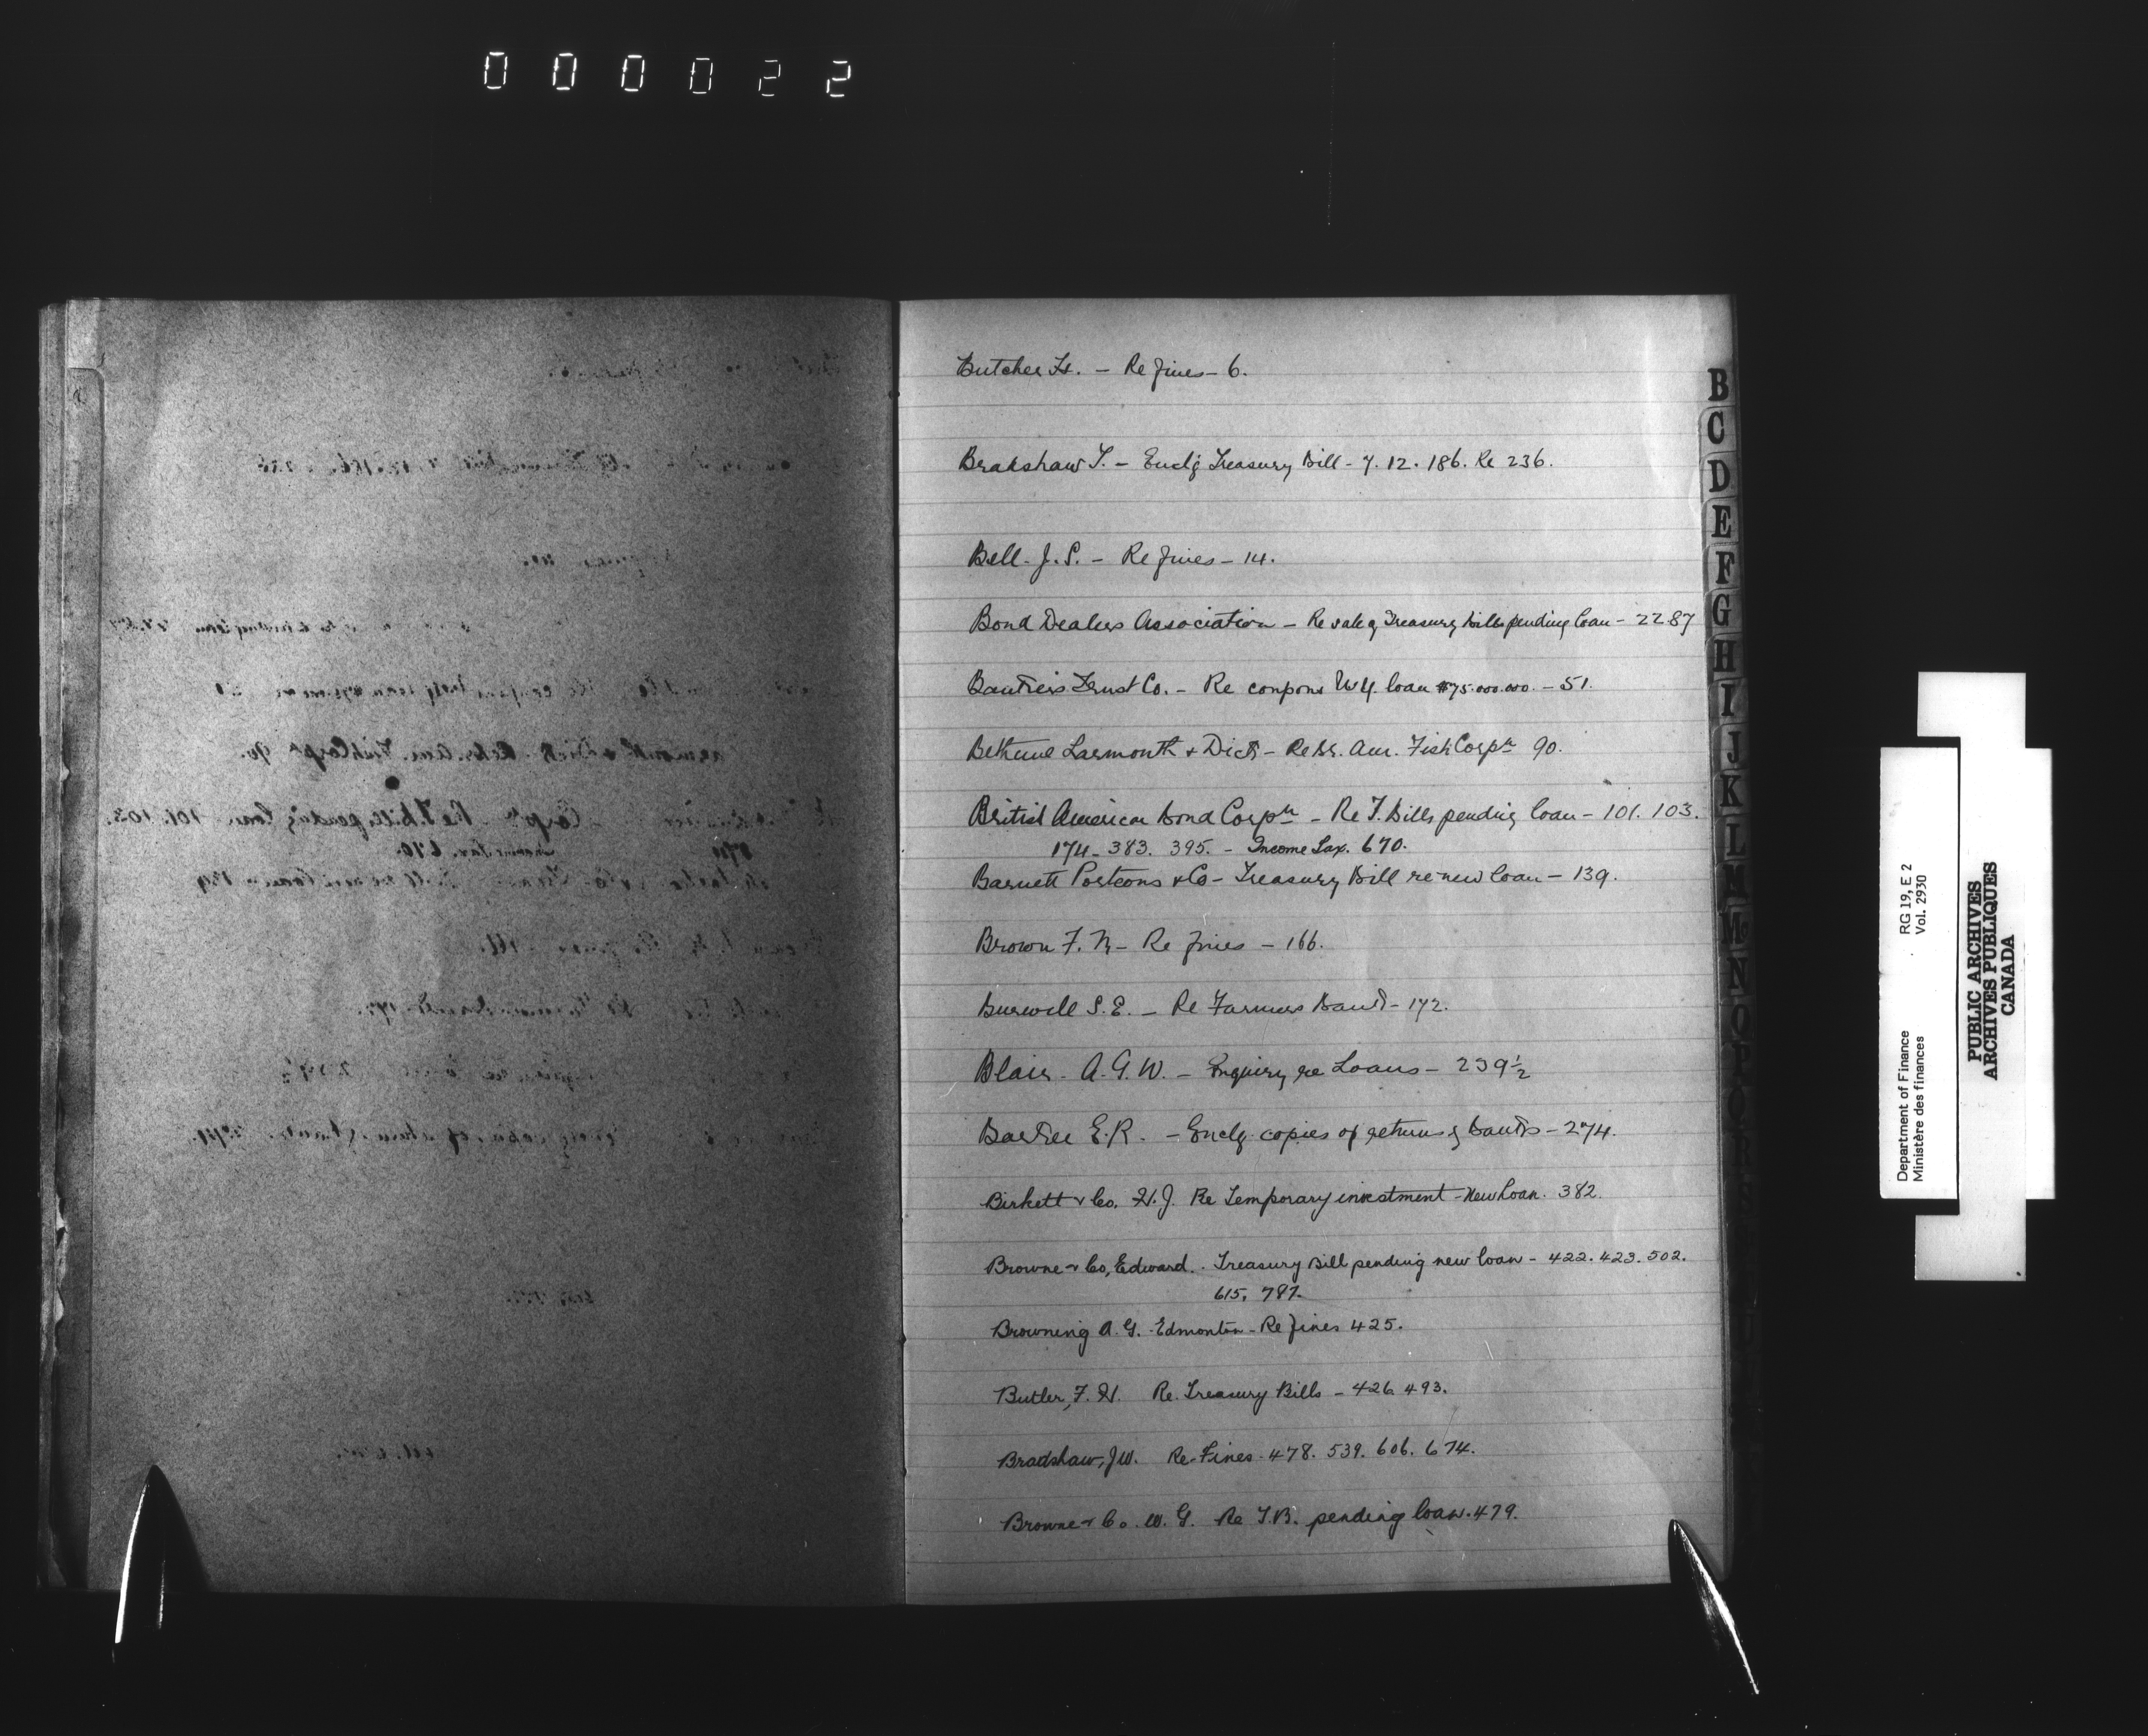 000022
Butcher H. – Re fines – 6.
Bradshaw T. – Enclg Treasury Bill – 7. 12. 186. Re 236.
Bell. J. S. – Re fines – 14.
Bond Dealers Association – Re sale of Treasury bills pending loan – 22 87
Bankers Trust Co. – Re coupons N.Y. loan $75.000.000. – 51.
Bethune Larmonth & Dick – Re Br. Am. Fish Corpn 90.
British American Bond Corpn – Re T. Bills pending loan – 101. 103.
174 – 383. 395. – Income Tax. 670.
Barnett Porteous & Co – Treasury Bill re new loan – 139.
Brown F. – Re fines – 166.
Burwell S. E. – Re Farmers Bank – 172.
Blair. A. G. W. – Enquiry re Loans – 239½
Barker E. R. – Enclg. copies of returns of banks – 274.
Birkett & Co. H. J. Re Temporary investment – New Loan. 382.
Browne & Co, Edward. Treasury Bill pending new loan – 422. 423. 502.
615. 787.
Browning A. G. Edmonton – Re fines 425.
Butler, F. H. Re. Treasury Bills – 426. 493.
Bradshaw, J W. Re. Fines. 478. 539. 606. 674.
Browne & Co. W. G. Re T.B. pending loan. 479.
B
C
D
E
F
G
H
I
J
K
L
M
Mc
N
O
Department of Finance RG 19, E 2
Ministère des finances Vol. 2930
PUBLIC ARCHIVES
ARCHIVES PUBLIQUES
CANADA